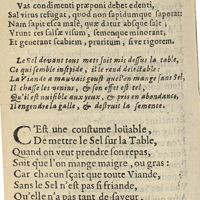 Vas condimenti præponi debet edenti,
Sal virus refugat, quod non sapidumque saporat:
Nam sapit esca malè, quæ datur absque sale,
Vrunt res salsæ visum, semenque minorant,
Et generant scabiem, pruritum, sive rigorem.
Le Sel devant tous mets soit mis dessus la table,
Ce qui semble insipide, il le rend delectable:
La Viande a mauvais goust que l'on mange sans Sel,
Il chasse les venins, & son effet est tel,
Qu'il est nuisible aux yeux, & pris en abondance,
Il engendre la galle, & destruit la semence.
C'Est une coustume loüable,
De mettre le Sel sur la Table,
Quand on veut prendre son repas,
Soit que l'on mange maigre, ou gras:
Car chacun sçait que toute Viande,
Sans le Sel n'est pas si friande,
Qu'elle n'a pas tant de saveur,